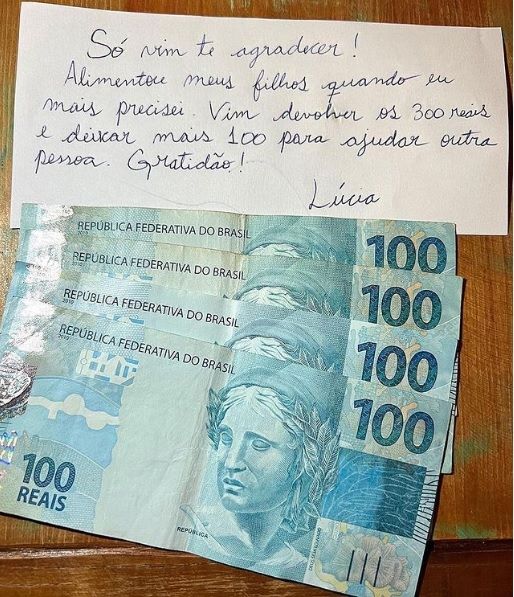 Só vim te agradecer!
Alimentou meus filhos quando eu
mais precisei. Vim devolver os 300 reais
e deixar mais 100 para ajudar outra
pessoa. Gratidão!
Lúcia
REPÚBLICA FEDERATIVA DO BRASIL
100
REPÚBLICA FEDERATIVA DO BRASIL
100
REPÚBLICA FEDERATIVA DO BRASIL
100
REPÚBLICA FEDERATIVA DO BRASIL
100
100
REAIS
REPÚBLICA